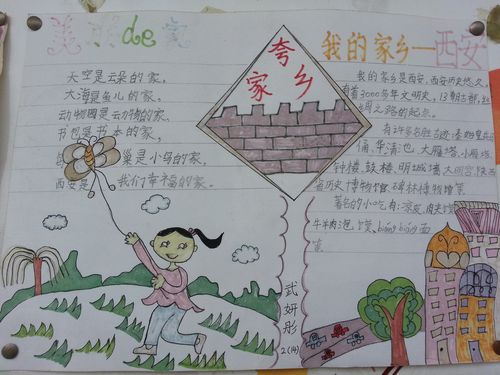 美丽de家
天空是云朵的家,
大海是鱼儿的家,
动物园是动物的家,
书包是书本的家,
巢是小鸟的家,
西安是 我们幸福的家。
夸家乡
我的家乡—西安
我的家乡是西安,西安历史悠久,
有着3000多年文明史,13朝古都,丝
绸之路的起点。
有许多名胜古迹:秦始皇兵马
俑、华清池、大雁塔、小雁塔、
钟楼、鼓楼、明城墙、大明宫、陕西
省历史博物馆、碑林博物馆等
著名的小吃有:凉皮、肉夹馍、
牛羊肉泡馍、biangbiang面
等
武妍彤
2(14)